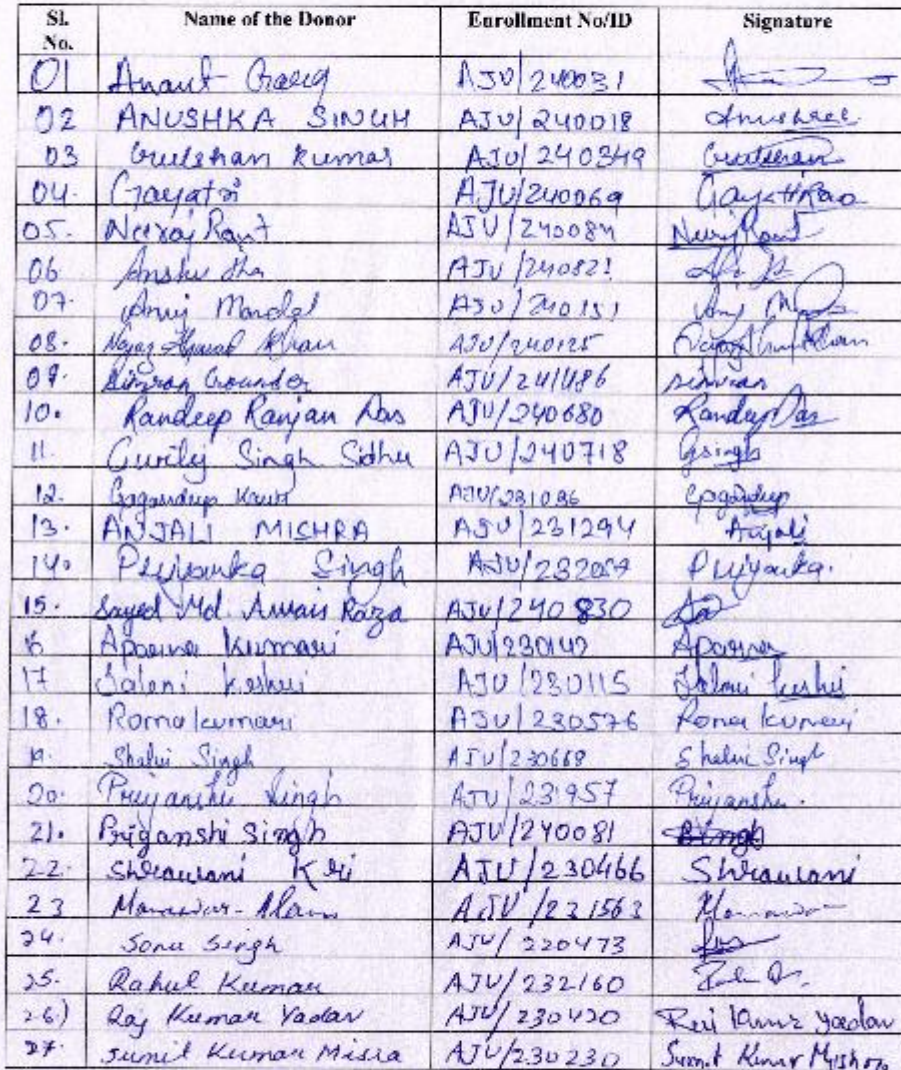 Sl. No. Name of the Donor Enrollment No/ID Signature
01 Anant Garg AJU/240031
02 ANUSHKA SINGH AJU/240018 Anushka
03 Gulshan Kumar AJU/240349 Gulshan
04. Gayatri AJU/240069 Gayatri Rao
05. Neeraj Raut AJU/240084 Neeraj Raut
06 Anshu Jha AJU/240821
07. Anuj Mandal AJU/240151
08. Khan AJU/240125 Khan
09. Simran AJU/241486 Simran
10. Randeep Ranjan Das AJU/240680 Randeep Das
11. Singh Sidhu AJU/240718 GSingh
12. Gagandeep Kaur AJU/231036 Gagandeep
13. ANJALI MISHRA AJU/231294 Anjali
14. Priyanka Singh AJU/232059 Priyanka.
15. Sayed Md. Awais Raza AJU/240830
16 Aparna Kumari AJU/230142 Aparna
17 Saloni Keshri AJU/230115 Saloni Keshri
18. Roma Kumari AJU/230576 Roma Kumari
19. Shalvi Singh AJU/230668 Shalvi Singh
20. Priyanshu Singh AJU/231957 Priyanshu.
21. Priyanshi Singh AJU/240081
22. Shrawani Kri AJU/230466 Shrawani
23 Alam AJU/231563
24. Sonu Singh AJU/220473
25. Rahul Kumar AJU/232160
26) Raj Kumar Yadav AJU/230420 Raj Kumar Yadav
27. Sumit Kumar Misra AJU/230230 Sumit Kumar Mishra